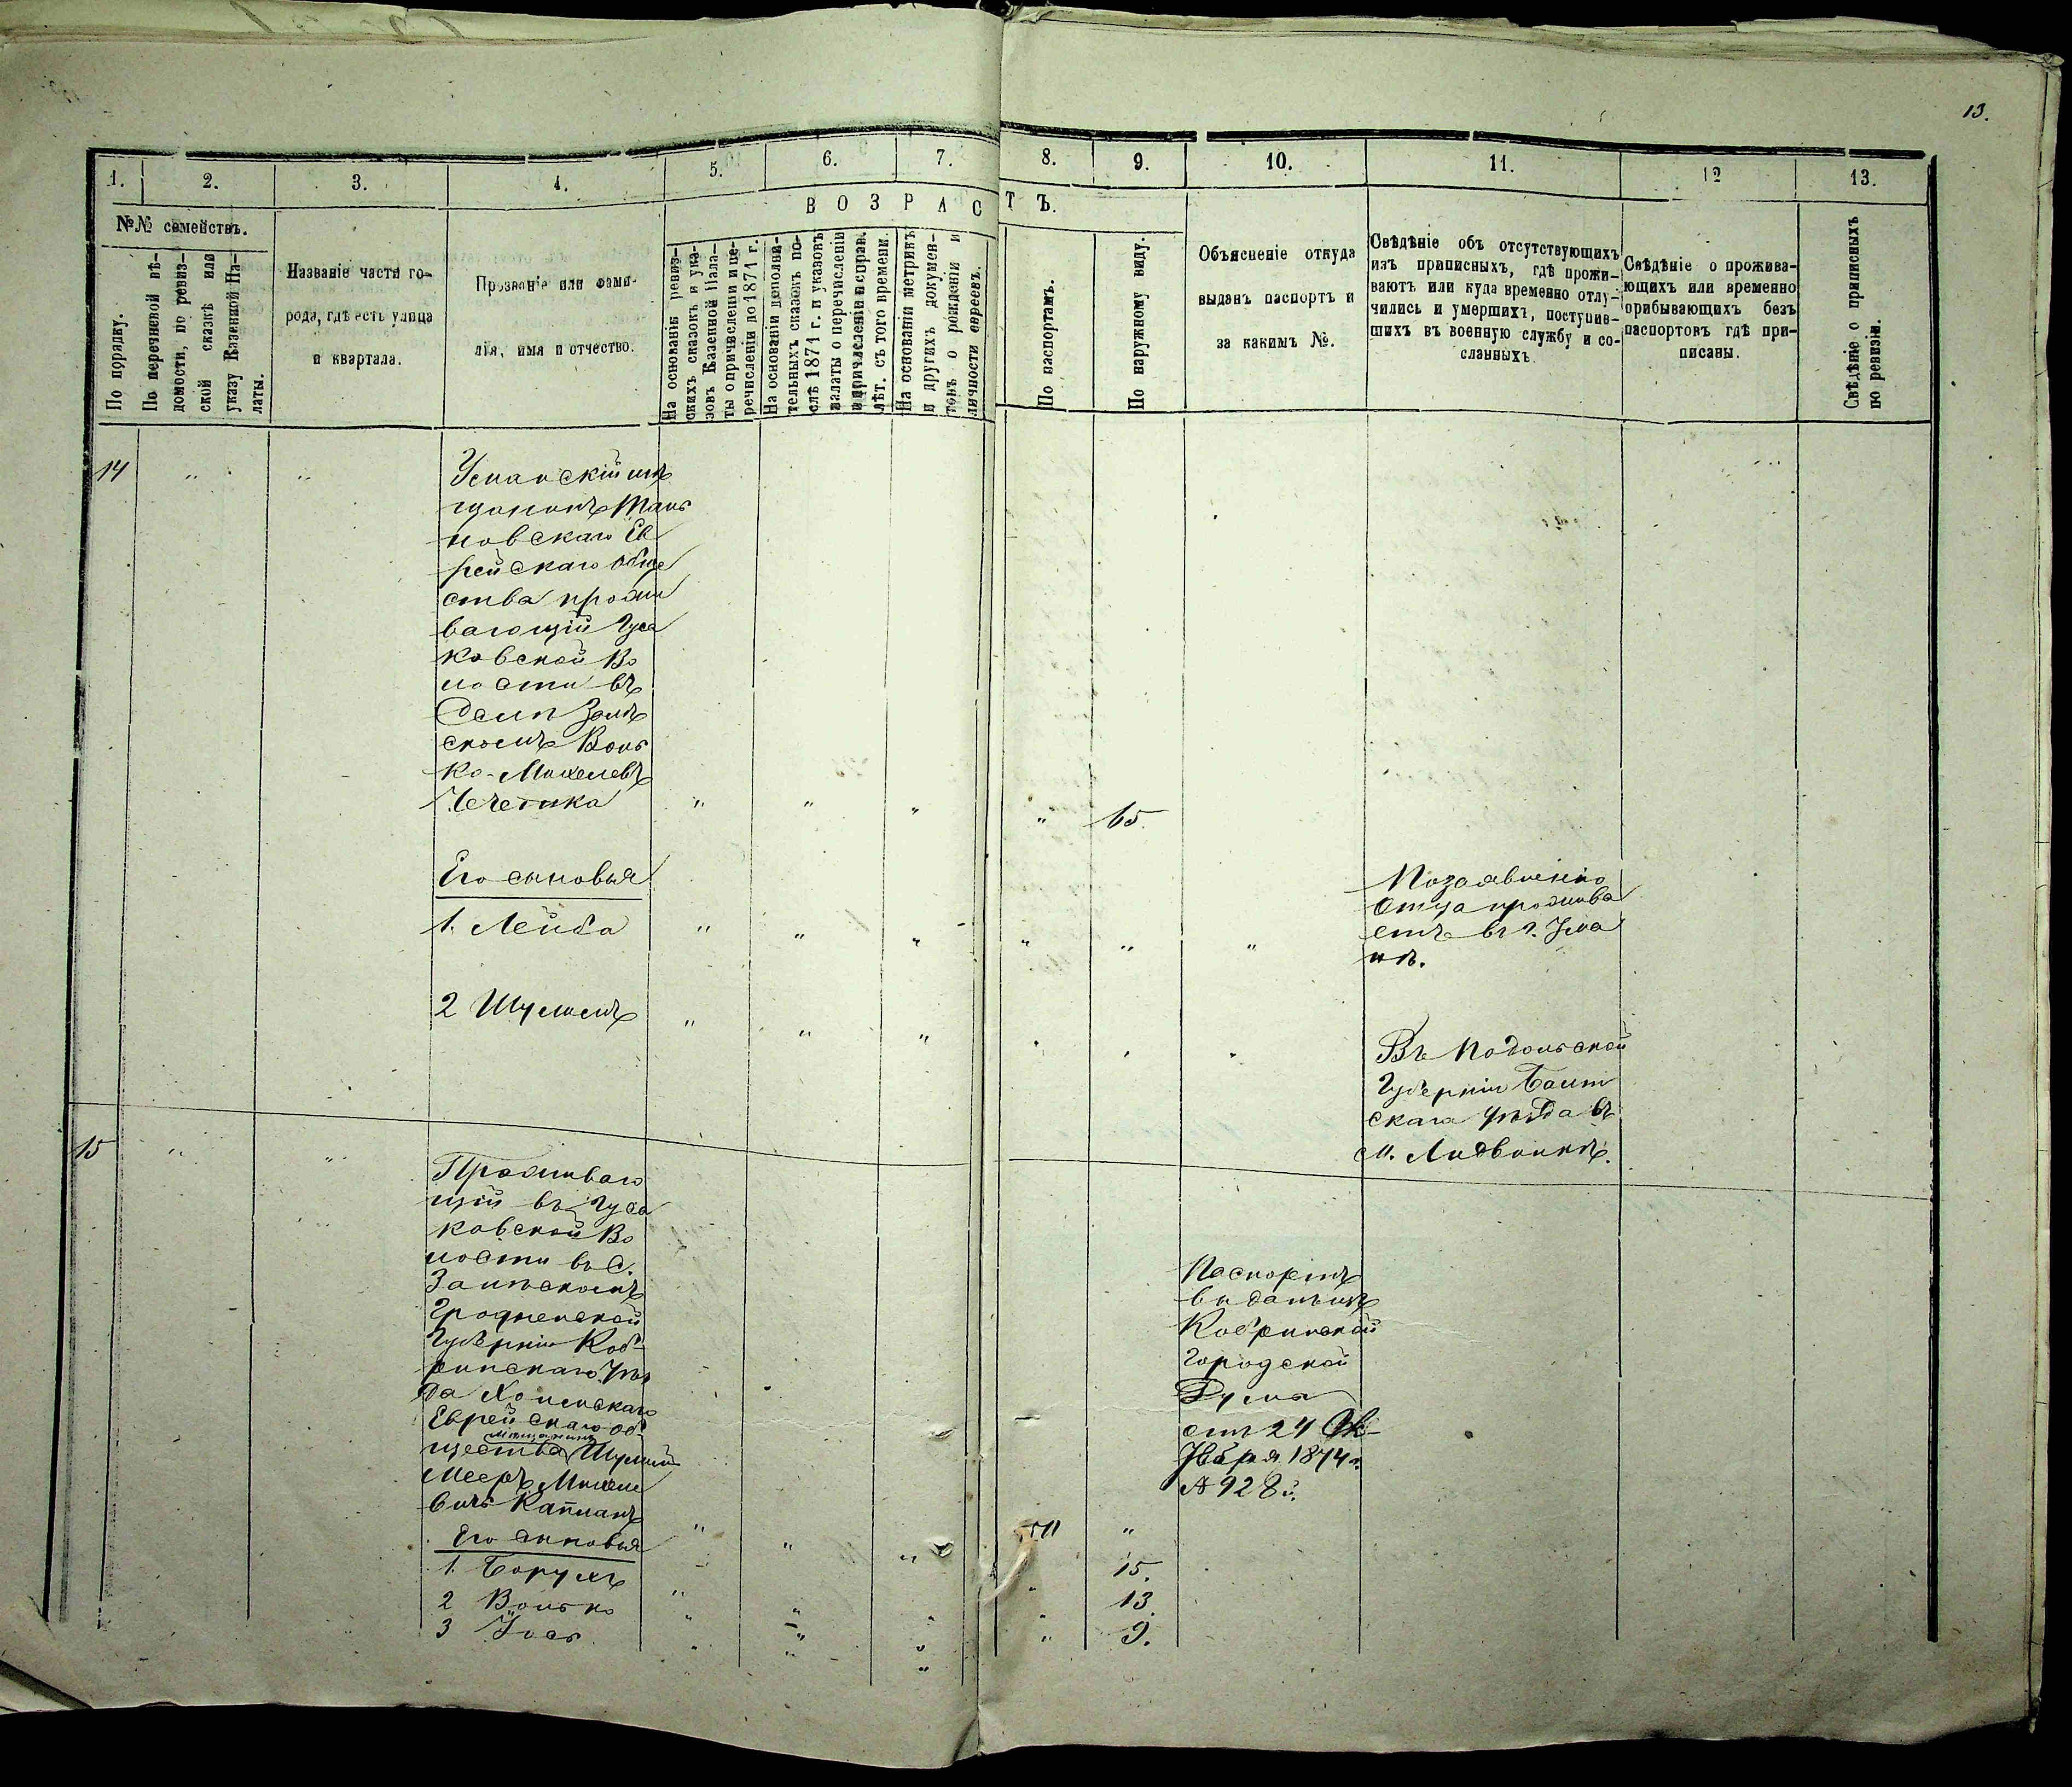 13.
1.
2.
3.
4.
5.
6.
7.
8.
9.
10.
11.
12
13.
№№ семействъ.
ВОЗРАСТЪ.
По порядку.
По перечневой вѣ-
домости, по ревиз-
ской сказкѣ или
указу Казенной Па-
латы.
Названіе части го-
рода, гдѣ есть улица
и квартала.
Прозваніе или фами-
лія, имя и отчество.
На основаніи ревиз-
скихъ сказокъ и ука-
зовъ Казенной Пала-
ты о причисленіи и пе-
речисленіи до 1871 г.
На основаніи дополни-
тельныхъ сказокъ по-
слѣ 1871 г. и указовъ
палаты о перечисленіи
и причисленіи и справ.
лѣт. съ того времени.
На основаніи метрикъ
и другихъ докумен-
товъ о рожденіи и
личности евреевъ.
По паспортамъ.
По наружному виду.
Объясненіе откуда
выданъ паспортъ и
за какимъ №.
Свѣдѣніе объ отсутствующихъ
изъ приписныхъ, гдѣ прожи-
ваютъ или куда временно отлу-
чились и умершихъ, поступив-
шихъ въ военную службу и со-
сланныхъ.
Свѣдѣніе о прожива-
ющихъ или временно
прибывающихъ безъ
паспортовъ гдѣ при-
писаны.
Свѣдѣніе о приписныхъ
по ревизіи.
14 " "
Уманскій мѣ
щанинъ Таль
новскаго Ев
рейскаго обще
ства прожи
вающій Гуса
ковской Во
лости въ
Селѣ
скомъ Воль
ко-Михелевъ
Чечотка " " " " 65.
Его сыновья
1. Лейба " " " " " "
По заявленію
отца прожива
етъ въ г. Ума
нѣ.
2 Шулимъ " " " " " "
Въ Подольской
Губерніи Балт
скаго уѣзда въ
м.
15 " "
Проживаю
щій въ Гуса
ковской Во
лости въ с.
Гродненской
Губерніи Коб-
ринскаго Уѣз
да Хомскаго
Еврейскаго об-
мѣщанинъ
щества
Мееръ Михеле
вичъ Капланъ " " " "
Паспортъ
выданъ изъ
Кобринской
Городской
Думы
отъ 24 Ок-
тября 1874 г.
№ 928.
Его сыновья
1. Борухъ " " " " 15.
2 Волько " " " " 13.
3 Іось " " " " 9.